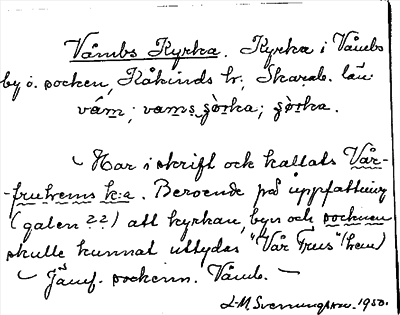 Våmbs Kyrka. Kyrka i Våmbs
by o. socken, Kåkinds hr; Skarab. län
vám; vams şòrka; şòrka.
Har i skrift och kallats Vår-
-fruhems k:a. Beroende på uppfattning
(galen??) att kyrkan, byn och socknen
skulle kunnat uttydas "Vår Frus" (hem)
Jämf. sockenn. Våmb. —
L.M. Svenungsson. 1950.